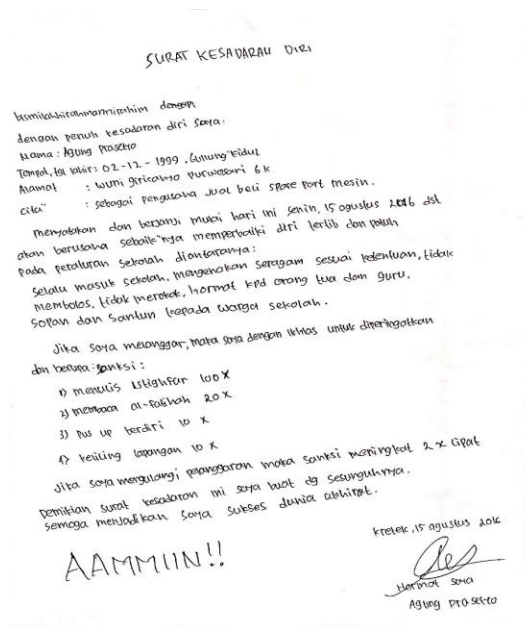 SURAT KESADARAN DIRI
bismillahhirahmannirrahim dengan
dengan penuh kesadaran diri saya:
Nama : Agung Prasetyo
Tempat, tgl lahir : 02-12-1999, Gunung kidul
Alamat : wuni giricahyo purwosari GK
cita" : sebagai pengusaha jual beli spare part mesin.
menyatakan dan berjanji mulai hari ini senin, 15 agustus 2016 dst
akan berusaha sebaik"nya memperbaiki diri tertib dan patuh
pada peraturan sekolah diantaranya :
selalu masuk sekolah, mengenakan seragam sesuai ketentuan, tidak
membolos, tidak merokok, hormat kpd orang tua dan guru,
sopan dan santun kepada warga sekolah.
Jika saya melanggar, maka saya dengan ikhlas untuk diperingatkan
dan berupa sanksi :
1) menulis istighfar 100 X
2) membaca al-fatihah 20 X
3) pus up berdiri 10 X
4) keliling lapangan 10 X
Jika saya mengulangi pelanggaran maka sanksi meningkat 2 x lipat
Demikian surat kesadaran ini saya buat dg sesungguhnya.
semoga menjadikan saya sukses dunia akhirat.
AAMMIIN!!
Kretek, 15 agustus 2016
Hormat saya
Agung Prasetyo